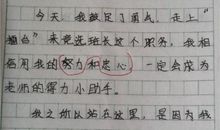 今天，我鼓足了勇气，走上“
擂台”来竞选班长这个职务，我相
信用我的努力和忠心，一定会成为
老师的得力小助手。
我之所以站在这里，是因为我